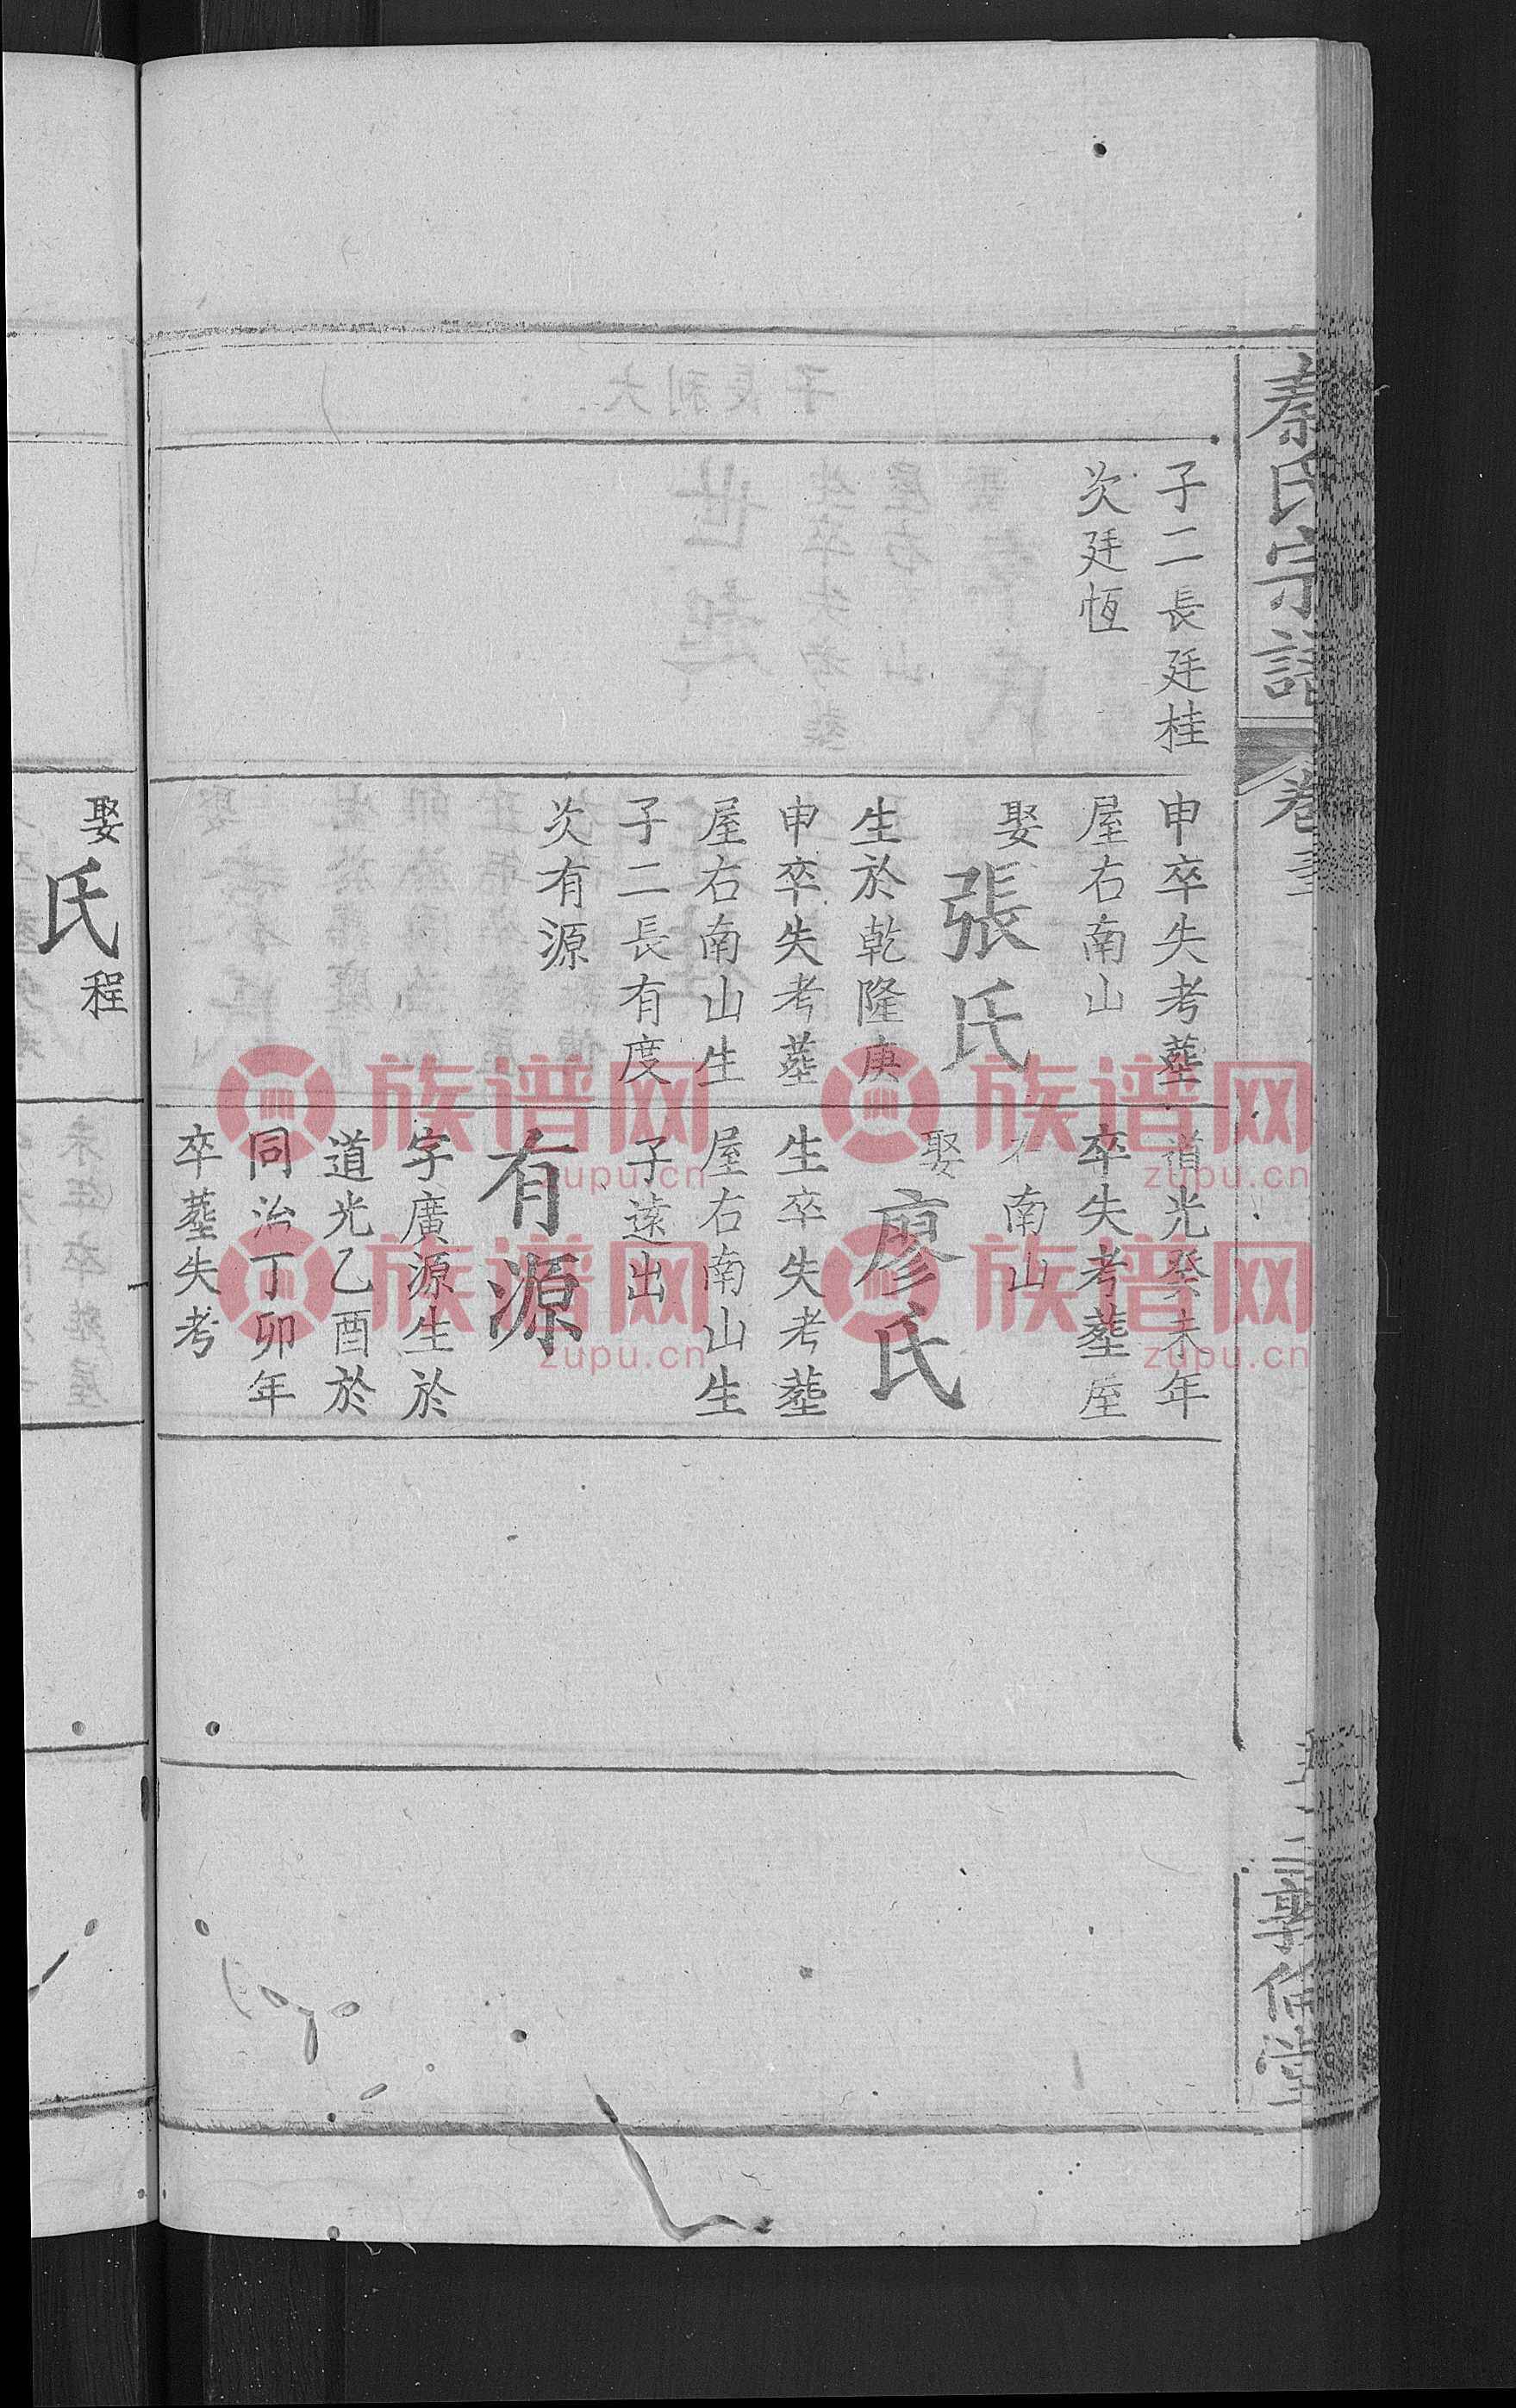 秦氏宗譜
卷
子二長廷桂
次廷恆
申卒失考塟
屋右南山
娶張氏
生於乾隆庚
申卒失考塟
屋右南山生
子二長有度
次有源
道光癸未年
卒失考塟屋
右南山
娶廖氏
生卒失考塟
屋右南山生
子遠出
有源
字廣源生於
道光乙酉於
同治丁卯年
卒塟失考
娶氏程
族谱网
zupu.cn
族谱网
zupu.cn
族谱网
zupu.cn
族谱网
zupu.cn